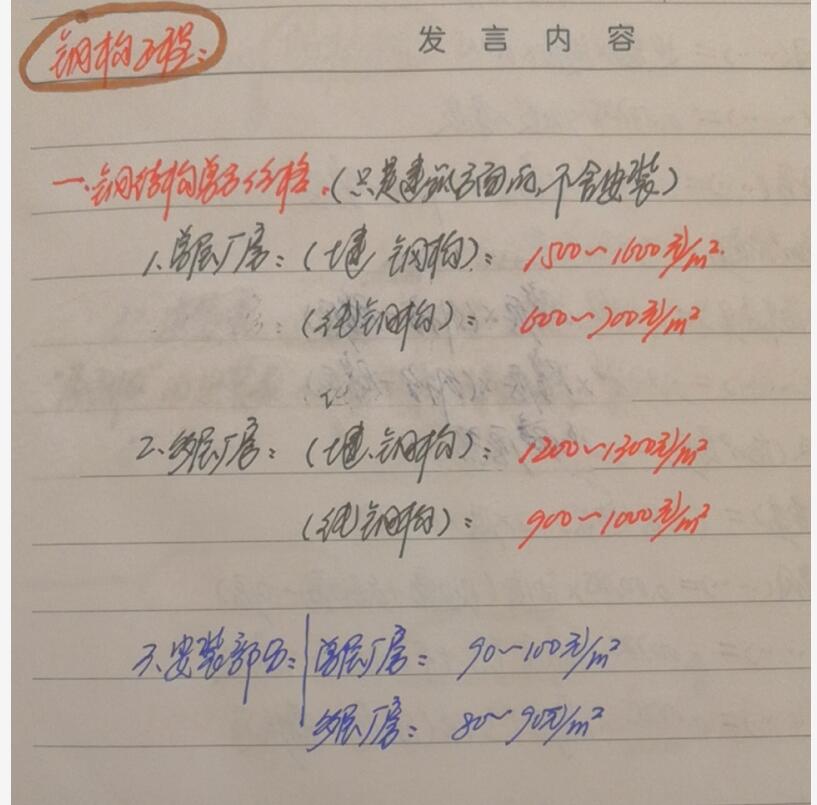 发言内容
钢构工程：
一.钢结构单方价格.(只是建筑方面的,不含安装)
1.单层厂房：(土建.钢构)：1500~1600元/m².
(纯钢构)：600~700元/m²
2.多层厂房：(土建.钢构)：1200~1300元/m²
(纯钢构)：900~1000元/m²
3.安装部分：单层厂房：90~100元/m²
多层厂房：80~90元/m²